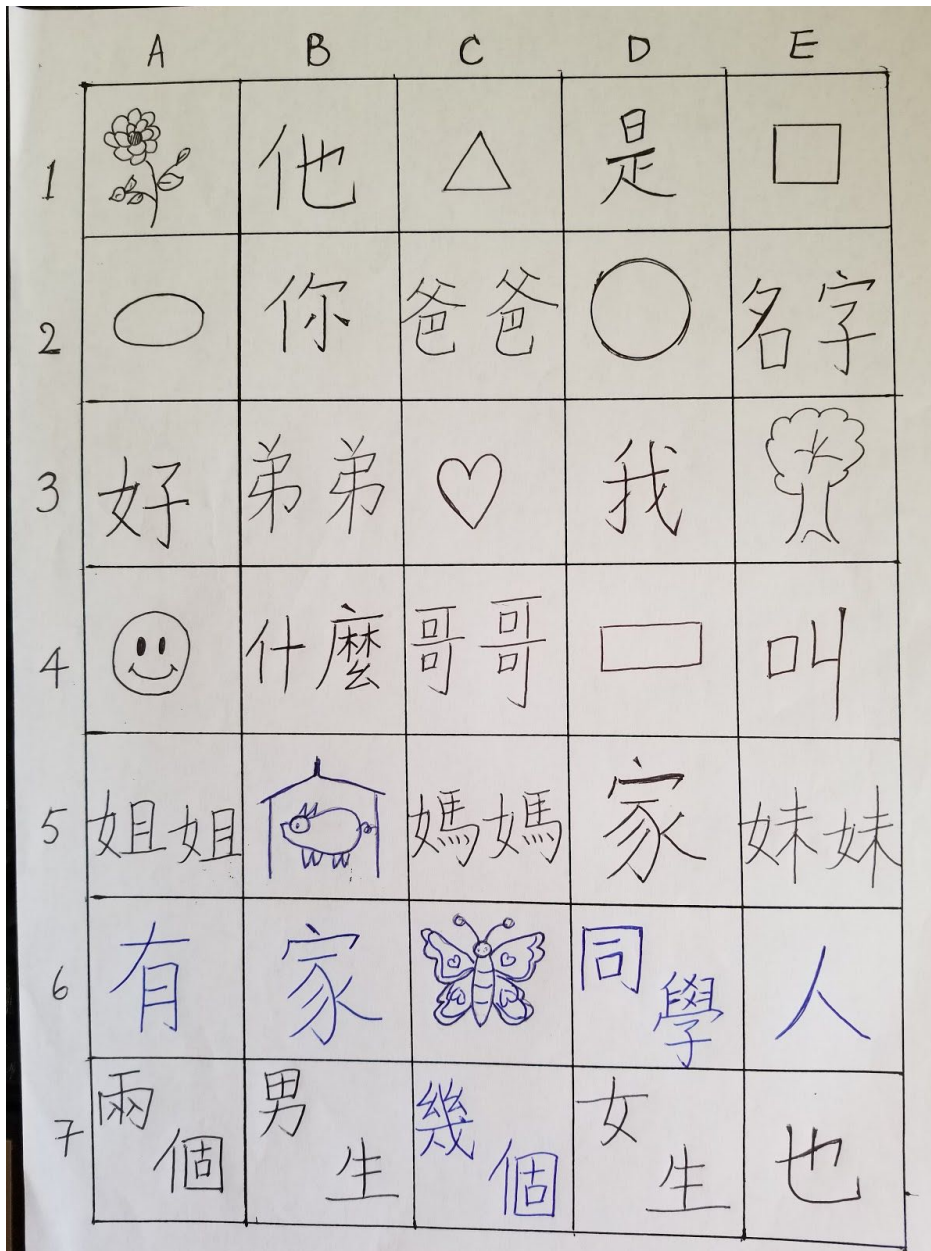 A B C D E
1 他 是
2 你 爸爸 名字
3 好 弟弟 我
4 什麼 哥哥 叫
5 姐姐 媽媽 家 妹妹
6 有 家 同學 人
7 兩個 男生 幾個 女生 也